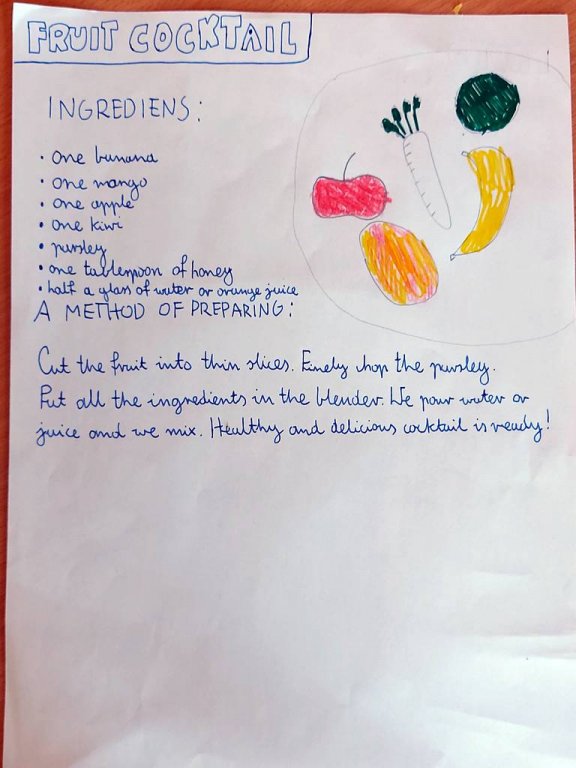 FRUIT COCKTAIL
INGREDIENS:
• one banana
• one mango
• one apple
• one kiwi
• parsley
• one tablespoon of honey
• half a glass of water or orange juice
A METHOD OF PREPARING:
Cut the fruit into thin slices. Finely chop the parsley.
Put all the ingredients in the blender. We pour water or
juice and we mix. Healthy and delicious cocktail is ready!